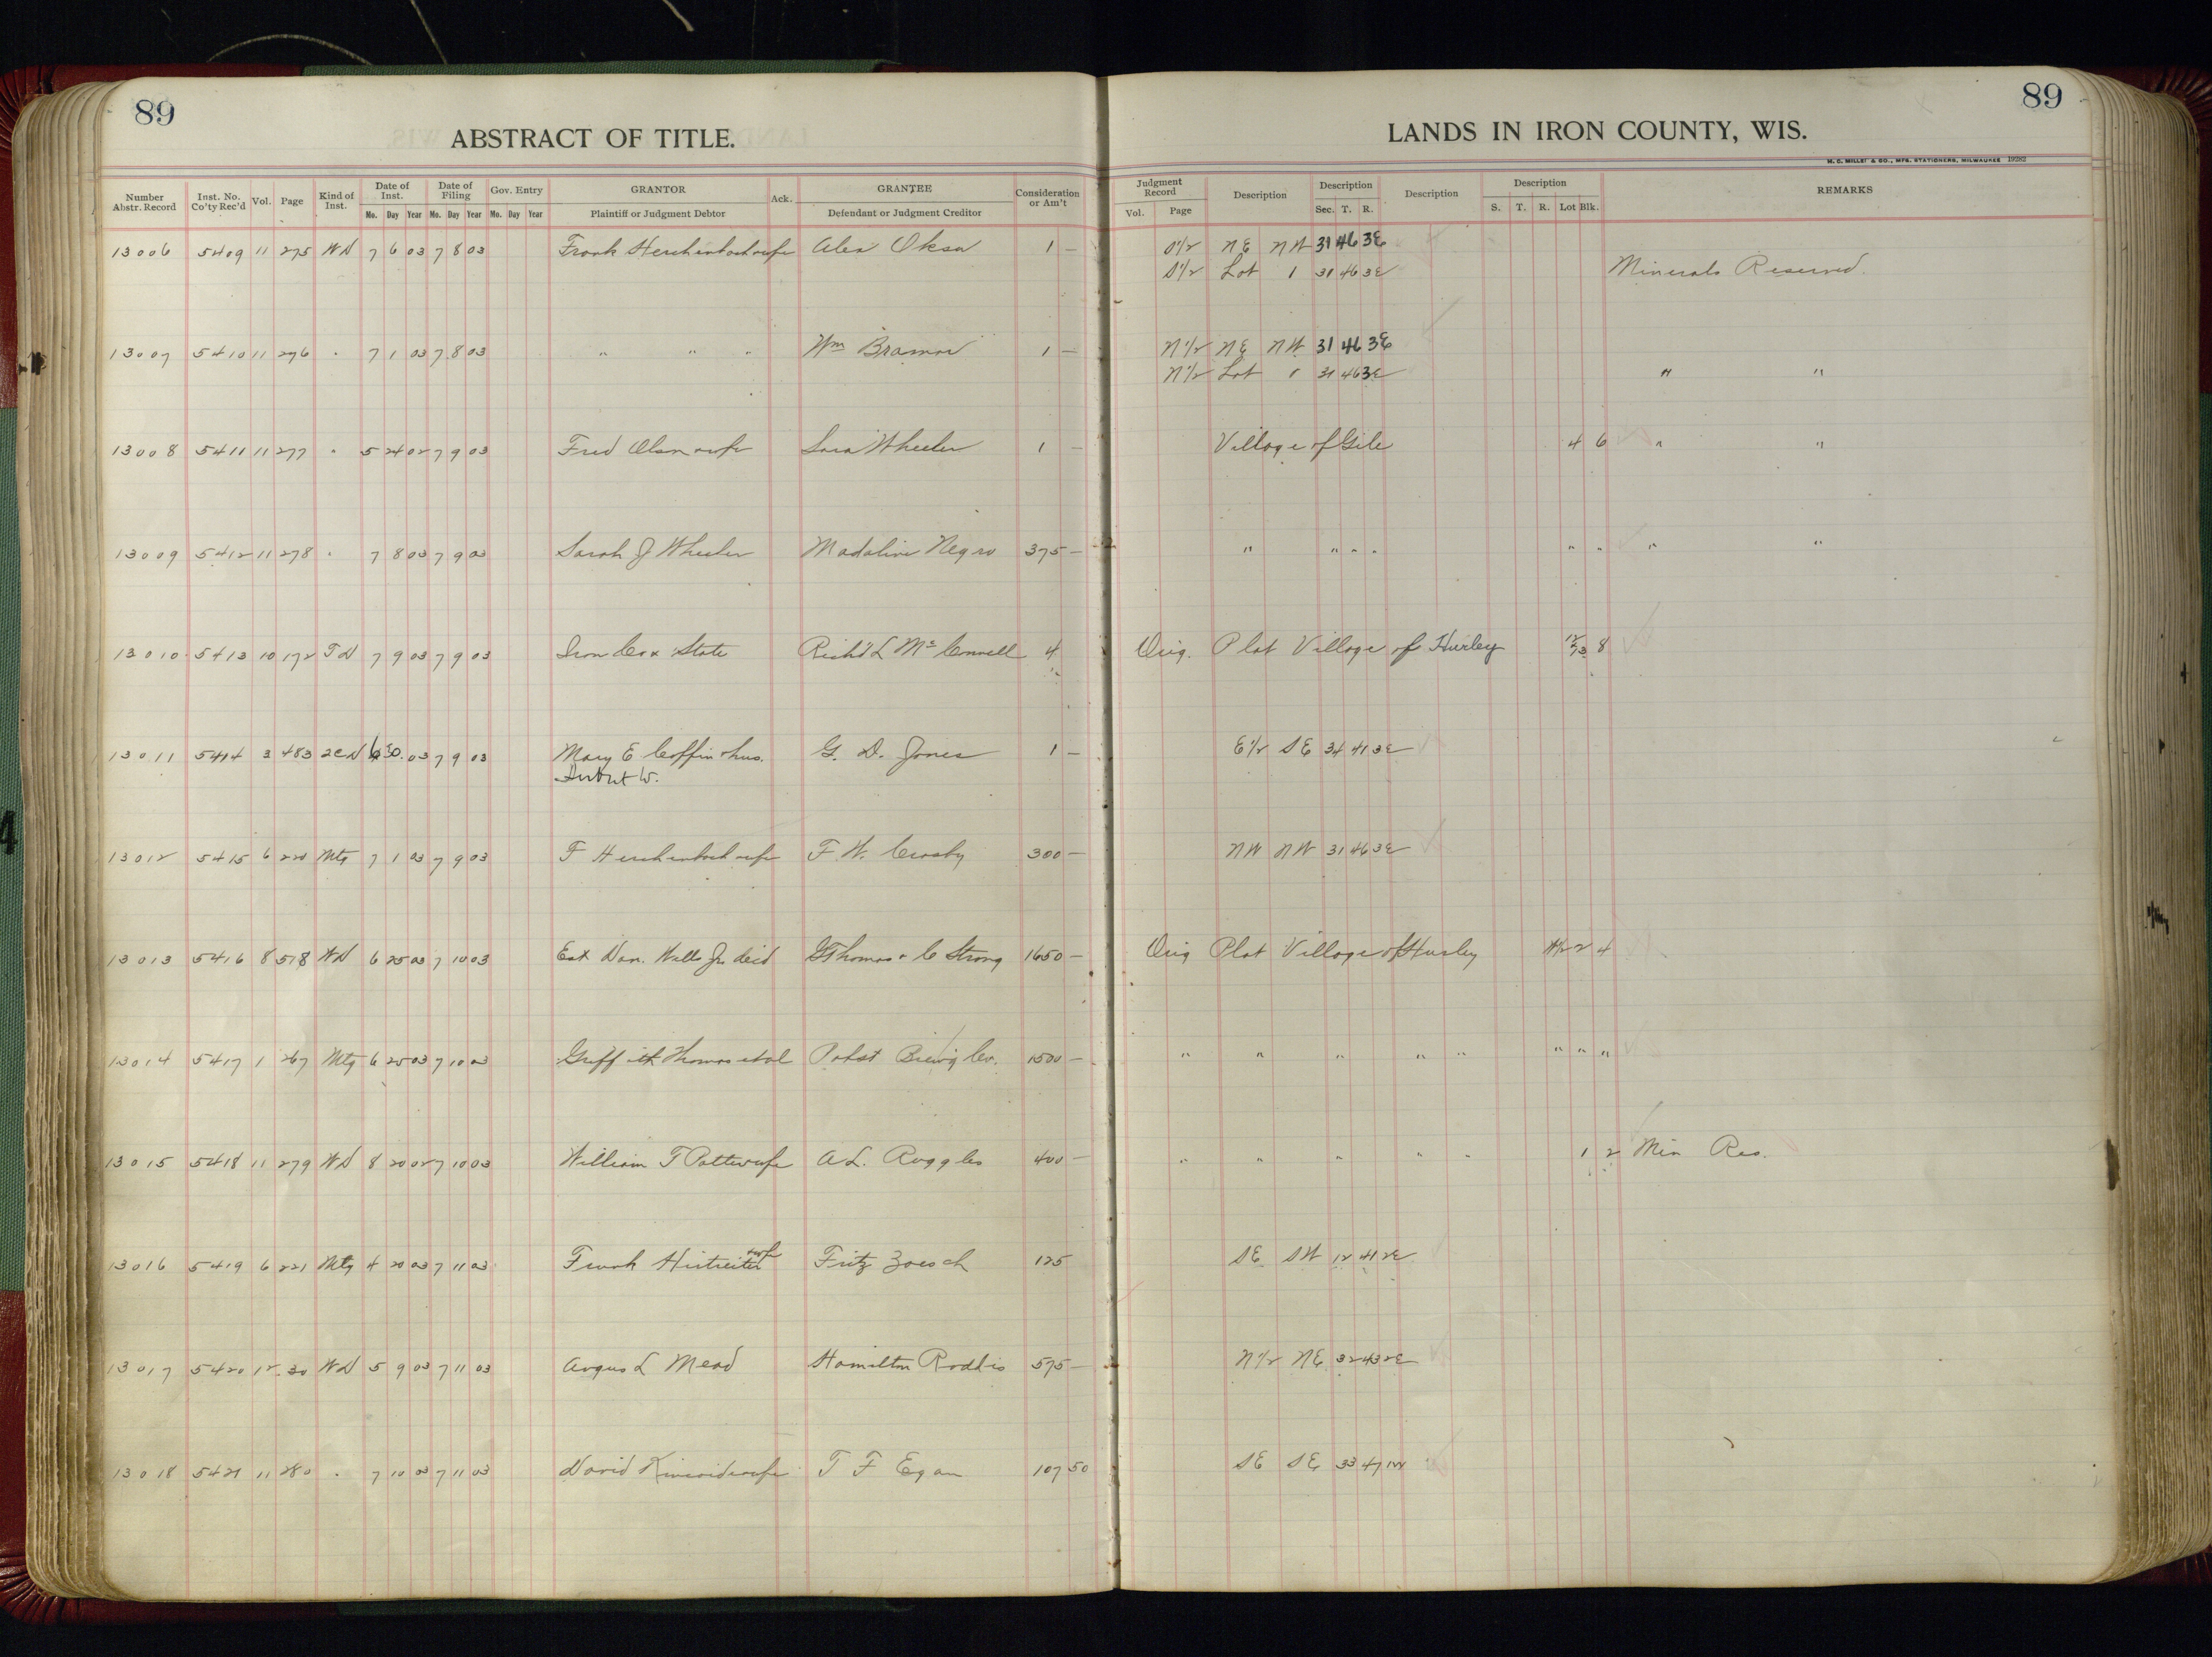 89
ABSTRACT OF TITLE.
89
LANDS IN IRON COUNTY, WIS.
H. C. MILLER CO., MFG. STATIONERS, MILWAUKEE
Number Abstr. Record Inst. No. Co'ty Rec'd Vol. Page Kind of Inst. Date of Inst. Mo. Day Year Date of Filing Mo. Day Year Gov. Entry Mo. Day Year GRANTOR Plaintiff or Judgment Debtor Ack. GRANTEE Defendant or Judgment Creditor Consideration or Am't Judgment Record Vol. Page Description Description Sec. T. R. Description Description S. T. R. Lot Blk. REMARKS
13006 5409 11 275 WD 7 6 03 7 8 03 Frank Herchenbach wife Alex Oksa 1 — S 1/2 NE NW 31 46 3E
S 1/2 Lot 1 31 46 3E Minerals Reserved.
13007 5410 11 276 " 7 1 03 7 8 03 " " " Wm 1 — N 1/2 NE NW 31 46 3E
N 1/2 Lot 1 31 46 3E " "
13008 5411 11 277 " 5 24 02 7 9 03 Fred Olson wife Sara Wheeler 1 — Village of Gile 4 6 " "
13009 5412 11 278 " 7 8 03 7 9 03 Sarah J Wheeler Madaline Negro 375 — " " " " " " " "
13010 5413 10 172 TD 7 9 03 7 9 03 Iron Co & State Rich'd L McConnell 4 Orig. Plat Village of Hurley 12/13 8
13011 5414 3 483 2CD 6 30 03 7 9 03 Mary E Coffin & hus. G. D. Jones 1 — E 1/2 SE 34 41 3E
W.
13012 5415 6 220 Mtg 7 1 03 7 9 03 F Herchenbach wife F. W. Crosby 300 — NW NW 31 46 3E
13013 5416 8 518 WD 6 25 03 7 10 03 Est Dan. Wells Jr dec'd G Thomas & C Strong 1650 — Orig Plat Village of Hurley 2 4
13014 5417 1 267 Mtg 6 25 03 7 10 03 Griffith Thomas et al Pabst Brewg Co. 1500 — " " " " " " " "
13015 5418 11 279 WD 8 20 02 7 10 03 William T Pott wife A L. Ruggles 400 — " " " " " 1 2 Min Res.
13016 5419 6 221 Mtg 4 20 03 7 11 03 Frank Hirtreiter wife Fritz Zoesch 125 SE SW 12 41 2E
13017 5420 12 30 WD 5 9 03 7 11 03 Angus L Mead Hamilton Roddis 575 — N 1/2 NE 32 43 2E
13018 5421 11 280 " 7 10 03 7 11 03 David wife T F Egan 107 50 SE SE 33 47